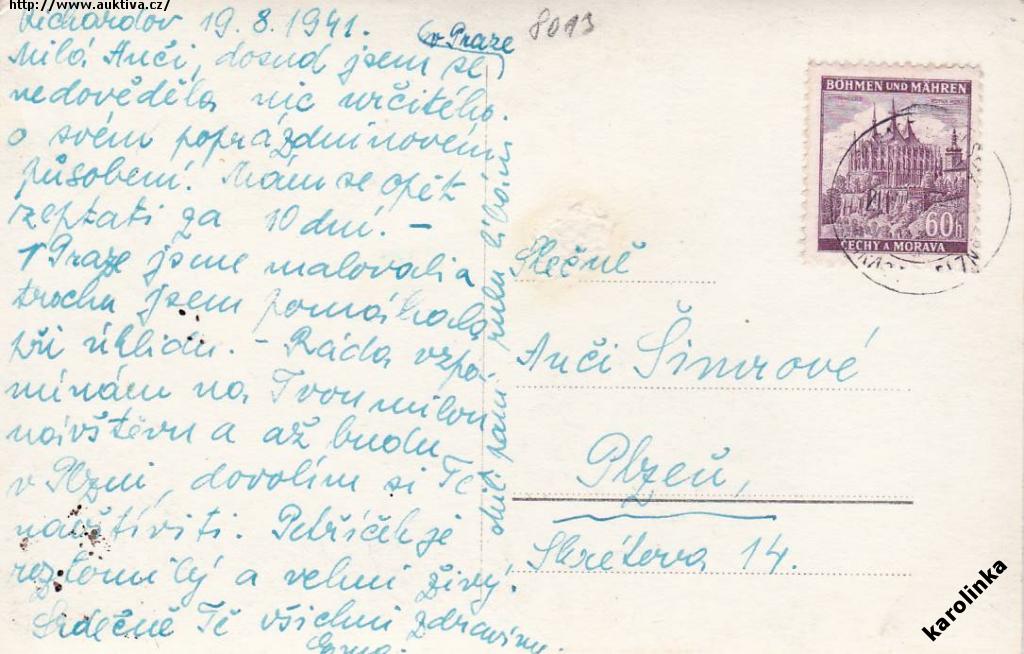 http://www.auktiva.cz/
19.8.1941.
Milá Anči, dosud jsem se
nedověděla nic určitého
o svém poprázdninovém
působení. Mám se opět
zeptati za 10 dní. -
V Praze jsme malovali a
trochu jsem pomáhala
při úklidu. - Ráda vzpo-
mínám na Tvou milou
návštěvu a až budu
v Plzni, dovolím si Tě
navštíviti. Petříček je
roztomilý a velmi živý.
Srdečně Tě všichni zdravíme.
v Praze
8013
BÖHMEN UND MÄHREN
60h
ČECHY A MORAVA
Slečně
Anči Šimrové
Plzeň,
Skrétova 14.
karolinka